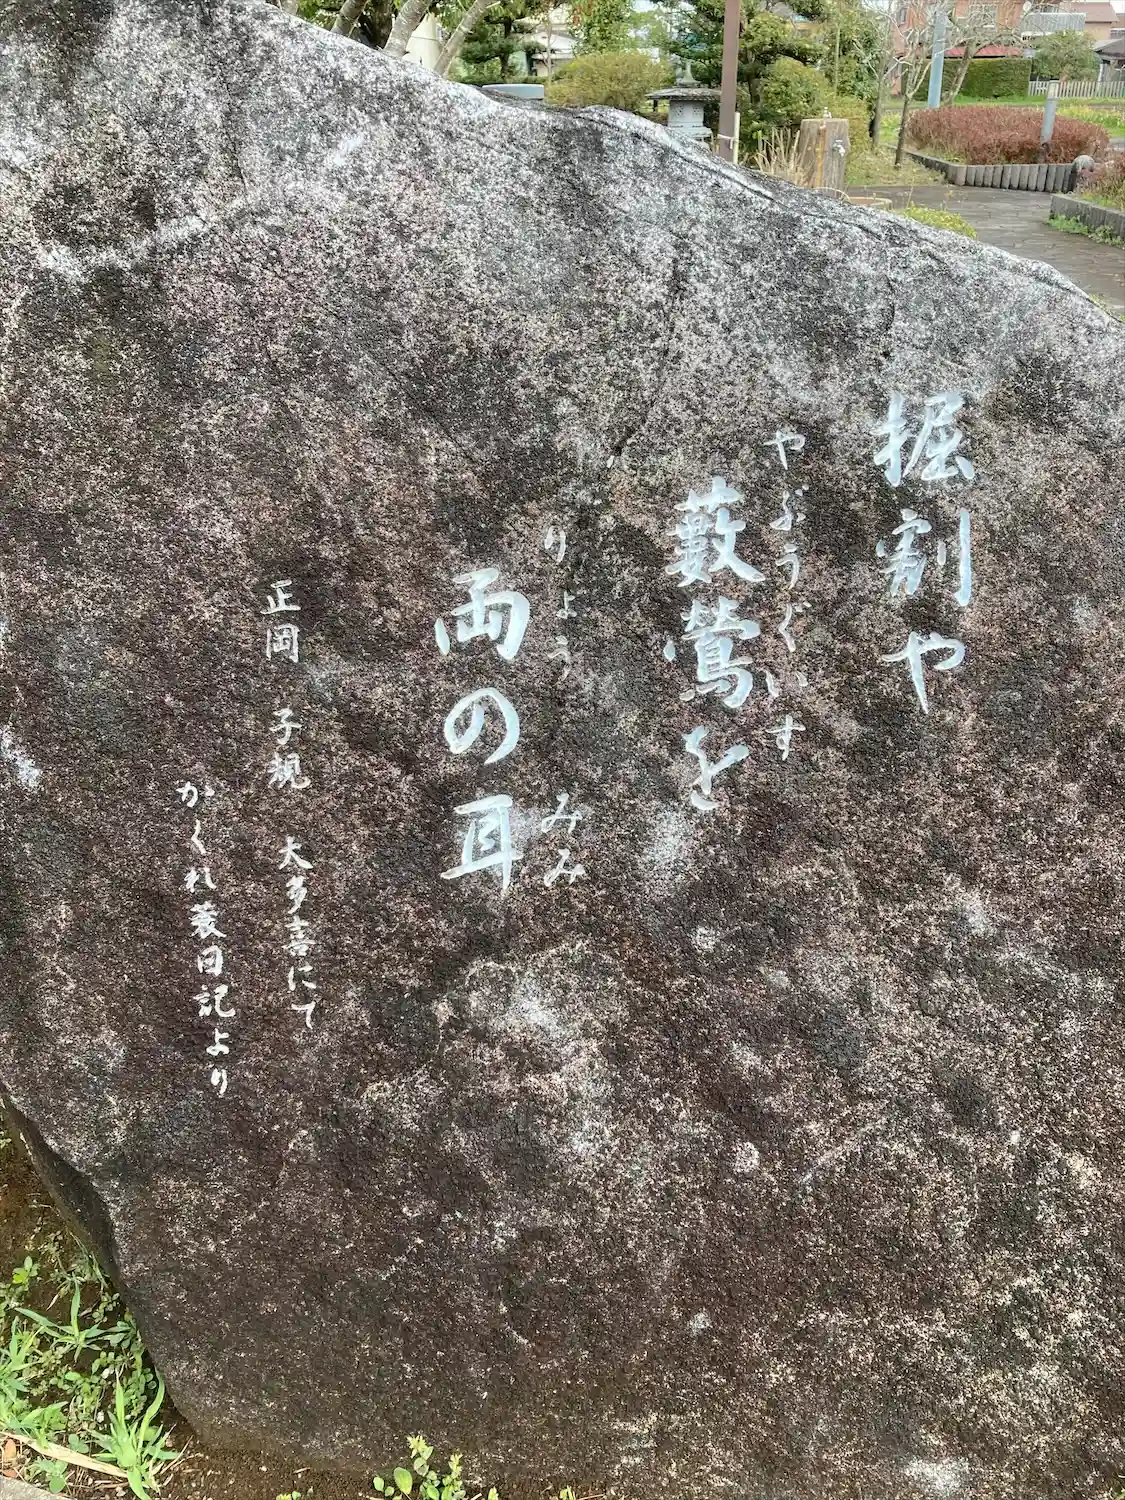 掘割や
やぶうぐいす
藪鶯を
りょう みみ
両の耳
正岡 子規 大多喜にて
かくれ蓑日記より